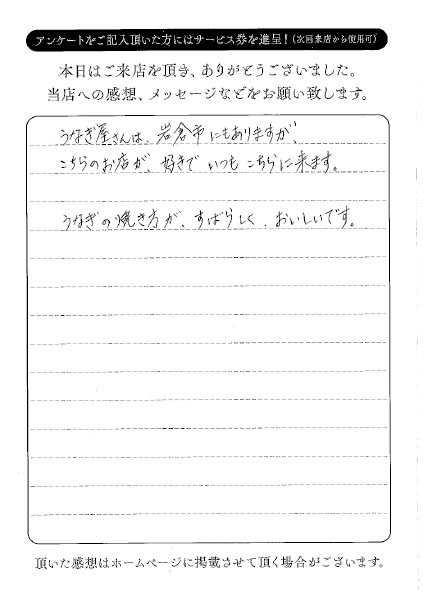 アンケートをご記入頂いた方にはサービス券を進呈！(次回来店から使用可)
本日はご来店を頂き、ありがとうございました。
当店への感想、メッセージなどをお願い致します。
うなぎ屋さんは、岩倉市にもありますが、
こちらのお店が、好きで いつも こちらに来ます。
うなぎの焼き方が、すばらしく、おいしいです。
頂いた感想はホームページに掲載させて頂く場合がございます。